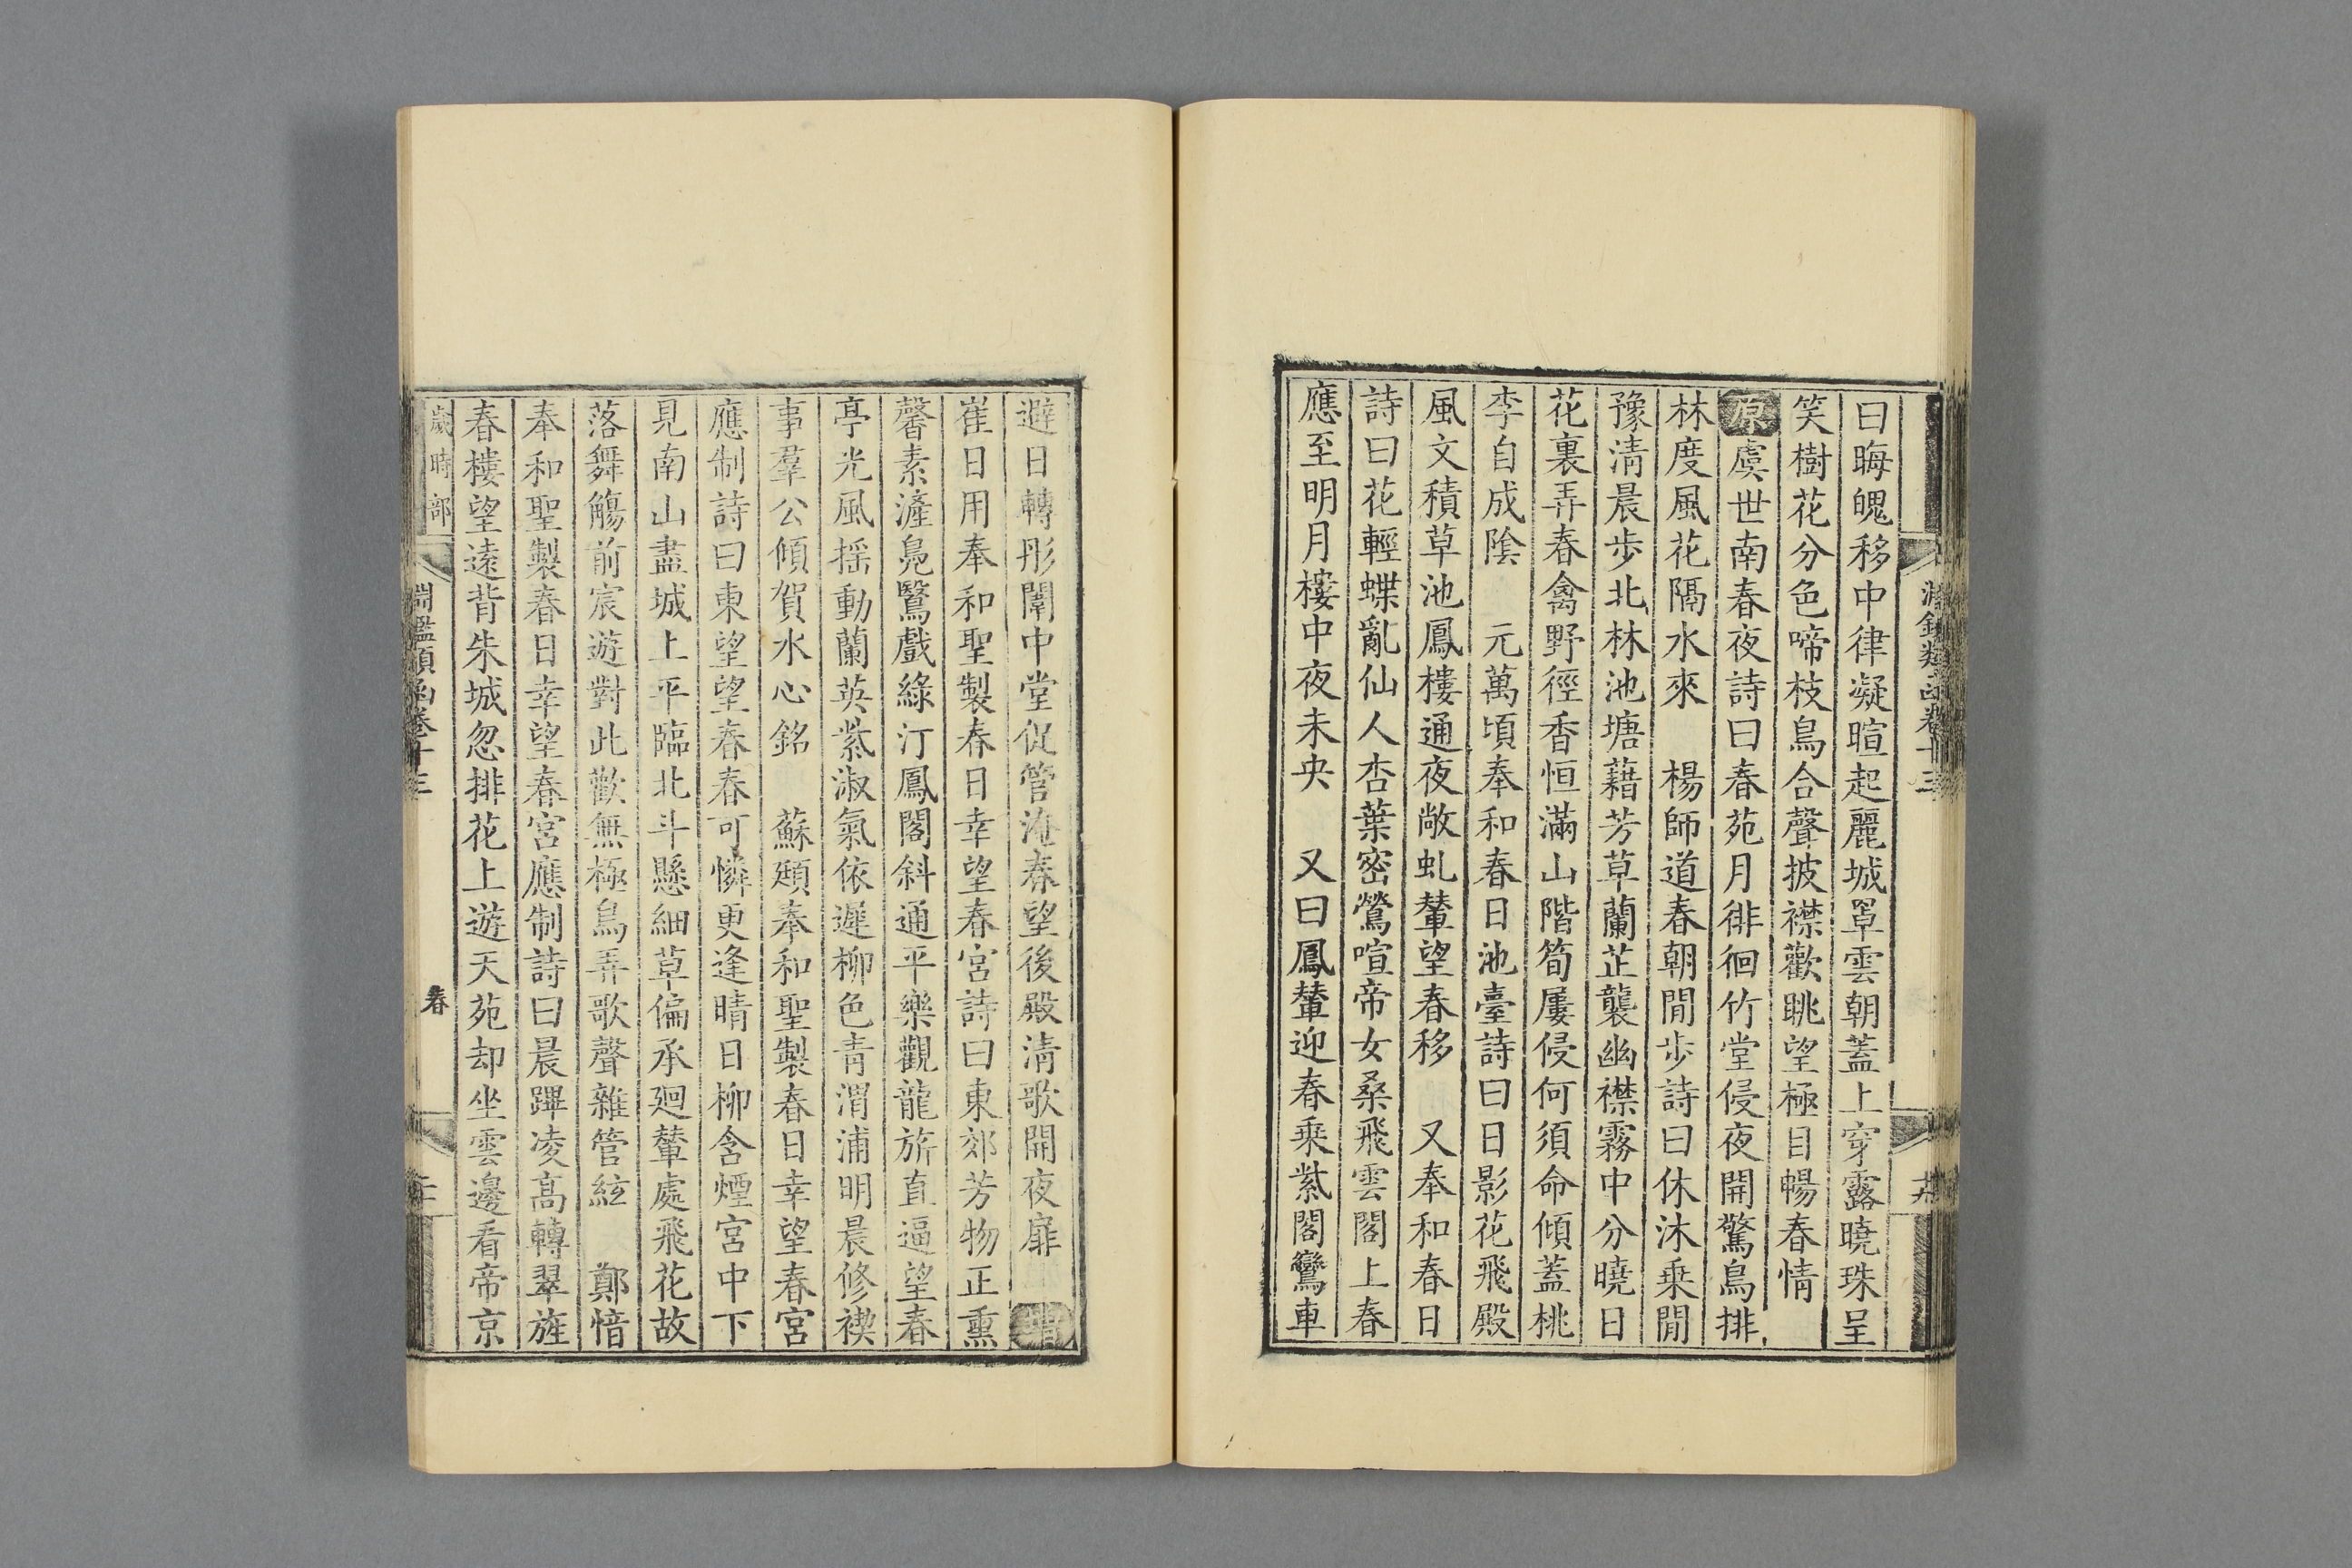 曰晦魄移中律凝暄起麗城罩雲朝蓋上穿露曉珠呈
笑樹花分色啼枝鳥合聲披襟歡眺望極目暢春情
原虞世南春夜詩曰春苑月徘徊竹堂侵夜開驚鳥排
林度風花隔水來　楊師道春朝閒步詩曰休沐乘閒
豫清晨步北林池塘藉芳草蘭芷襲幽襟霧中分曉日
花裏弄春禽野徑香恒滿山階筍屢侵何須命傾蓋桃
李自成陰　元萬頃奉和春日池臺詩曰日影花飛殿
風文積草池鳳樓通夜敞虬輦望春移　又奉和春日
詩曰花輕蝶亂仙人杏葉密鶯喧帝女桑飛雲閣上春
應至明月樓中夜未央　又曰鳳輦迎春乘紫閣鸞車
避日轉彤闈中堂促管淹春望後殿清歌開夜扉　增
崔日用奉和聖製春日幸望春宮詩曰東郊芳物正熏
馨素滻鳧鷖戲綠汀鳳閣斜通平樂觀龍旂直逼望春
亭光風搖動蘭英紫淑氣依遲柳色青渭浦明晨修禊
事羣公傾賀水心銘　蘇頲奉和聖製春日幸望春宮
應制詩曰東望望春春可憐更逢晴日柳含煙宮中下
見南山盡城上平臨北斗懸細草偏承廻輦處飛花故
落舞觴前宸遊對此歡無極鳥弄歌聲雜管絃　鄭愔
奉和聖製春日幸望春宮應制詩曰晨蹕凌高轉翠旌
春樓望遠背朱城忽排花上遊天苑却坐雲邊看帝京
歲時部　淵鑑類函卷十三　春